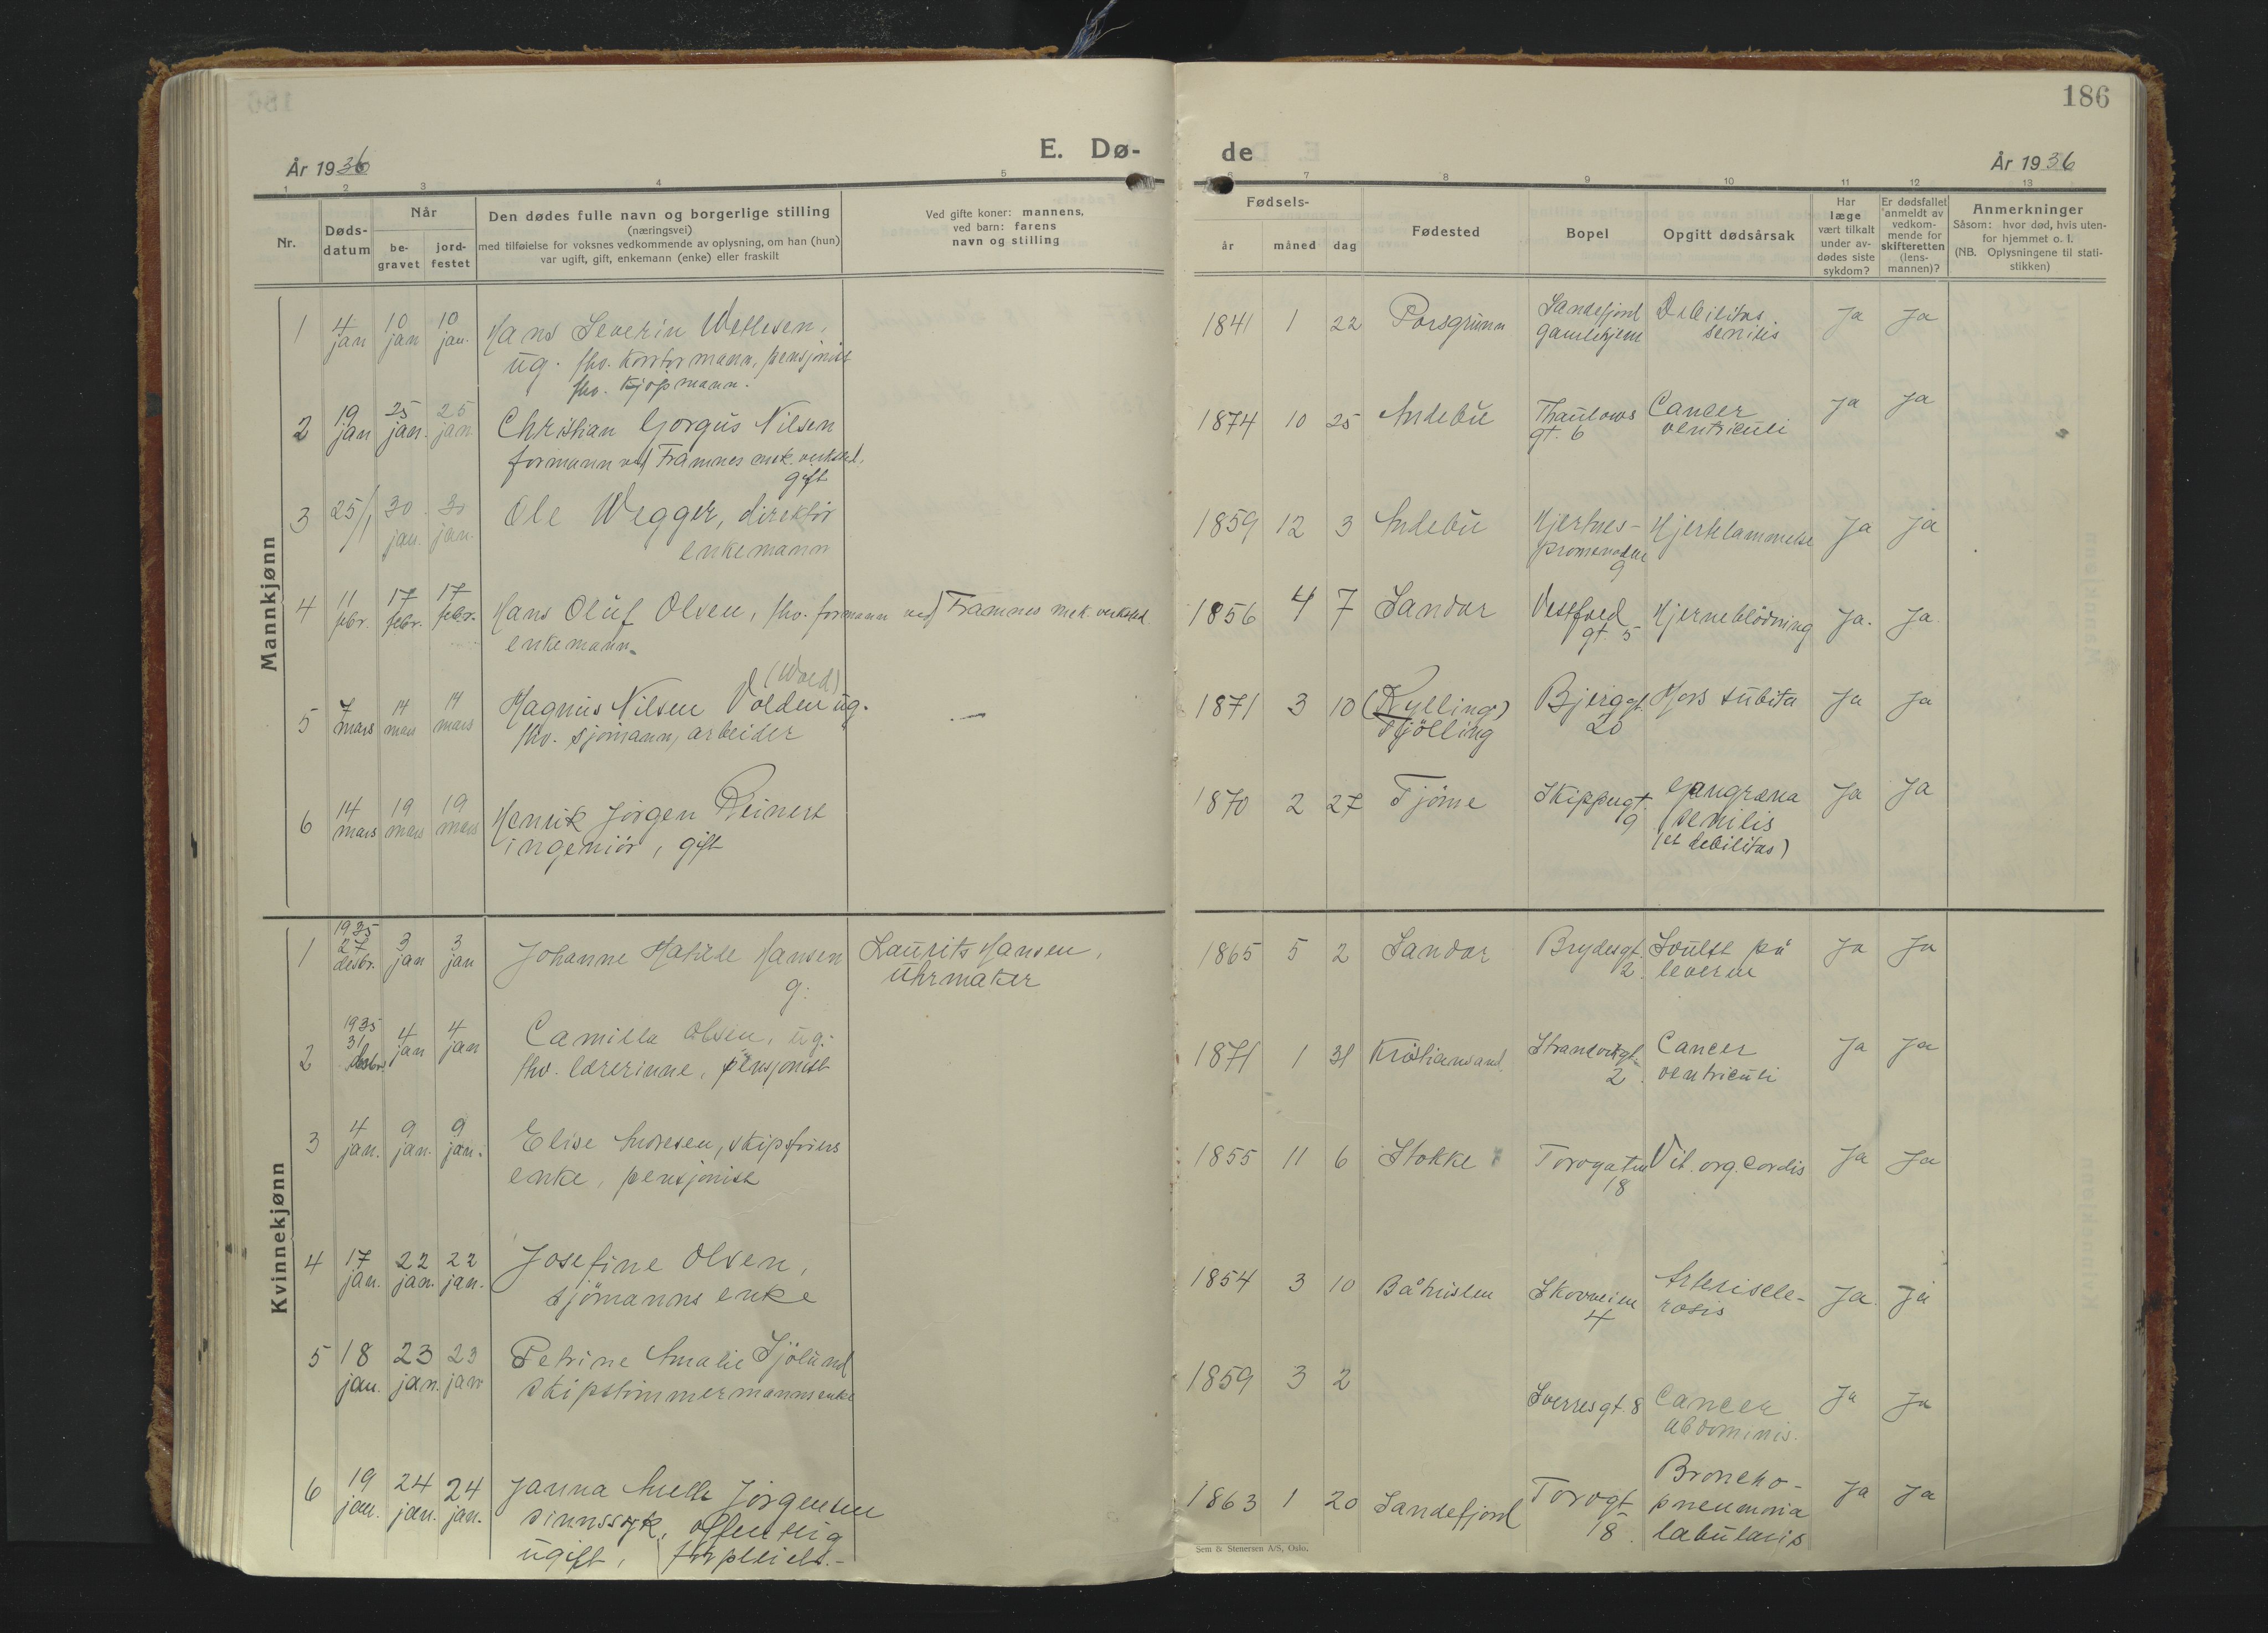 186
E. Dø-
de
År 1936
År 1936
1 2 3 4 5 6 7 8 9 10 11 12 13
Nr.
Døds-
datum
Når
be-
gravet
jord-
festet
Den dødes fulle navn og borgerlige stilling
(næringsvei)
med tilføielse for voksnes vedkommende av oplysning, om han (hun)
var ugift, gift, enkemann (enke) eller fraskilt
Ved gifte koner: mannens,
ved barn: farens
navn og stilling
Fødsels-
år måned dag
Fødested
Bopel
Opgitt dødsårsak
Har
læge
vært tilkalt
under av-
dødes siste
sykdom?
Er dødsfallet
anmeldt av
vedkom-
mende for
skifteretten
(lens-
mannen)?
Anmerkninger
Såsom: hvor død, hvis uten-
for hjemmet o. l.
(NB. Oplysningene til stati-
stikken)
Mannkjønn
1 4 10 10 Hans Severin Wettesen, 1841 1 22 Porsgrunn Sandefjord Debilitas Ja Ja
jan jan jan. ug. fhv. kontormann, pensjonist gamlehjem senilis
fhv. kjøpmann.
2 19 25 25 Christian Gorgus Nilsen 1874 10 25 Andebu Thaulows Cancer Ja Ja
jan jan. jan. formann ved Framnes mek. verksted, gt. 6 ventriculi
gift
3 25/1 30 30 Ole Wegger, direktör 1859 12 3 Andebu Hjertnes- Hjertelammelse Ja Ja
jan. jan. enkemann promenaden
9
4 11 17 17 Hans Oluf Olsen, fhv. formann ved Framnes mek. verksted. 1856 4 7 Sandar Vestfold Hjerneblödning Ja. Ja
febr. febr. febr. enkemann. gt. 5
(Wold)
5 7 14 14 Magnus Nilsen Volden ug. — 1871 3 10 (Kylling) Bjerggt. Mors subita Ja Ja
mars mars mars fhv. sjömann, arbeider Tjölling 20
6 14 19 19 Henrik Jörgen Reinert 1870 2 27 Tjöme Skippergt. Gangræna Ja Ja
mars mars mars ingeniör, gift 9 senilis
(et debilitas)
Kvinnekjønn
1935
1 27 3 3 Johanne Mathilde Hansen Laurits Hansen, 1865 5 2 Sandar Brydesgt. Svulst på Ja Ja
desbr. jan jan g. Uhrmaker 2 leveren
1935
2 31 4 4 Camilla Olsen, ug. 1871 1 31 Kristiansand. Strandvikgt. Cancer Ja Ja
desbr. jan jan fhv. lærerinne, pensjonist 2 ventriculi
3 4 9 9 Elise Andresen, skipsförers 1855 11 6 Stokke Torvgaten Vit. org. cordis Ja Ja
jan. jan. jan. enke, pensjonist 18
4 17 22 22 Josefine Olsen, 1854 3 10 Båhuslen Skovveien Arteriscle- Ja Ja
jan. jan. jan. sjömanns enke 4 rosis
5 18 23 23 Petrine Amalie Sjölund 1859 3 2 Sverresgt 8 Cancer Ja Ja
jan. jan. jan skipstömmermanns enke abdominis.
6 19 24 24 Janna Jörgensen 1863 1 20 Sandefjord Torvgt Broncho- Ja Ja
jan. jan. jan. sinnssyk, offentlig 18. pneumonia
ugift, forpleiet.- lobularis
Sem & Stenersen A/S, Oslo.